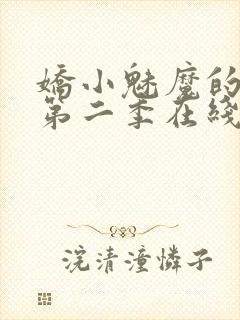 嬌小魅魔的
第二季在綫
浣清潼憐子